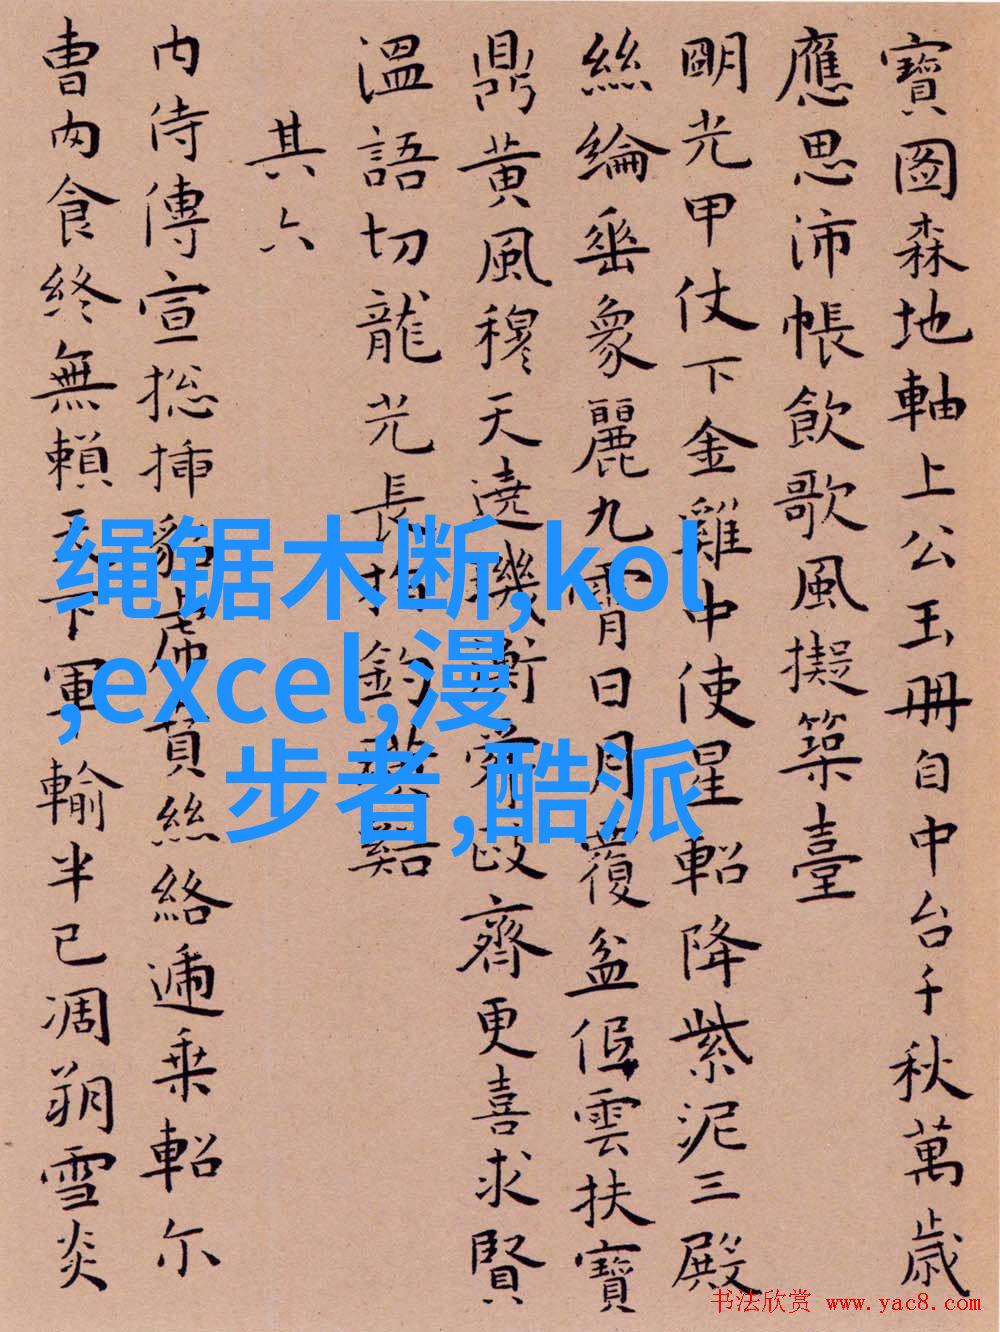 寶圖森地軸上公玉冊自中台千秋萬歲
應思沛帳飲歌風擬築臺
朙光甲仗下金雞中使星軺降紫泥三殿
絲綸垂象麗九霄日月覆盆伍雲扶寶
鼎黃風穆天遶璣衡齊政齊更喜求賢
溫語切龍光長
其六
內侍傳宣摠揷貂席頁絲絡遍乘軺尓
曹內食終無賴天下軍輸半已凋朔雪炎
绳锯木断,kol
,excel,漫
步者,酷派
书法欣赏 www.yac8.com